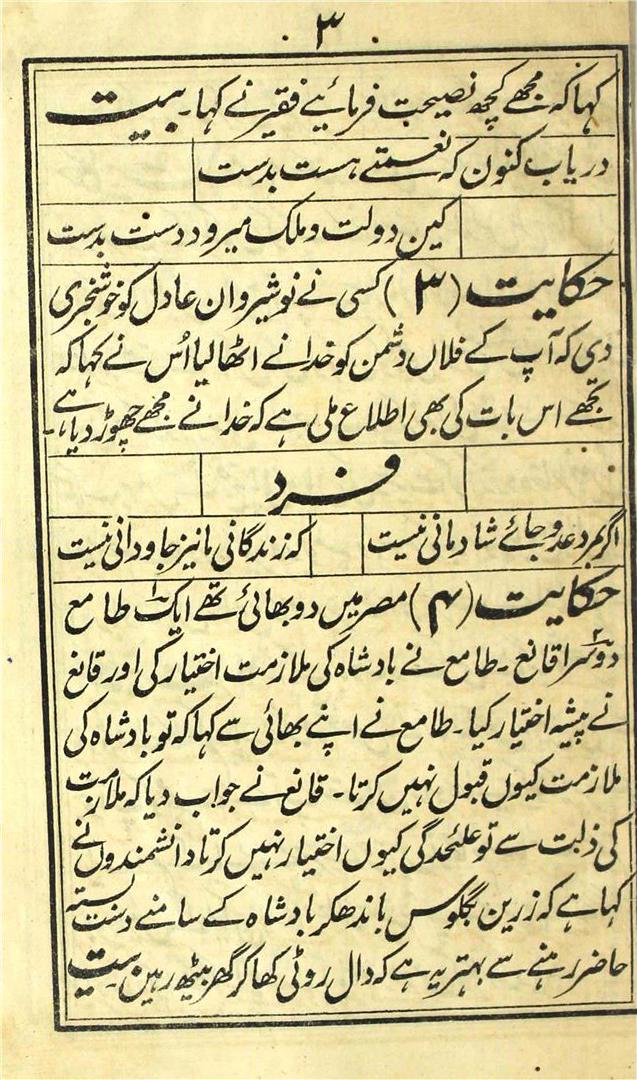 ۳
کہا کہ مجھے کچھ نصیحت فرمائیے فقیر نے کہا۔ بیت
دریاب کنون کہ نعمتے ہست بدست
کین دولت و ملک میرود دست بدست
حکایت (۳) کسی نے نوشیروان عادل کو خوشخبری
دی کہ آپ کے فلاں دشمن کو خدا نے اٹھا لیا اُس نے کہا کہ
تجھے اس بات کی بھی اطلاع ملی ہے کہ خدا نے مجھے چھوڑ دیا ہے۔
فرد
اگر بمرد عدو جائے شادمانی نیست کہ زندگانی ما نیز جاودانی نیست
حکایت (۴) مصر میں دو بھائی تھے ایک طامع
دوسرا قانع۔ طامع نے بادشاہ کی ملازمت اختیار کی اور قانع
نے پیشہ اختیار کیا۔ طامع نے اپنے بھائی سے کہا کہ تو بادشاہ کی
ملازمت کیوں قبول نہیں کرتا۔ قانع نے جواب دیا کہ ملازمت
کی ذلت سے تو علٰحدگی کیوں اختیار نہیں کرتا دانشمندوں نے
کہا ہے کہ زرین بگلوس باندھکر بادشاہ کے سامنے دست بستہ
حاضر رہنے سے بہتر یہ ہے کہ دال روٹی کھا کر گھر بیٹھ رہین۔ بیت